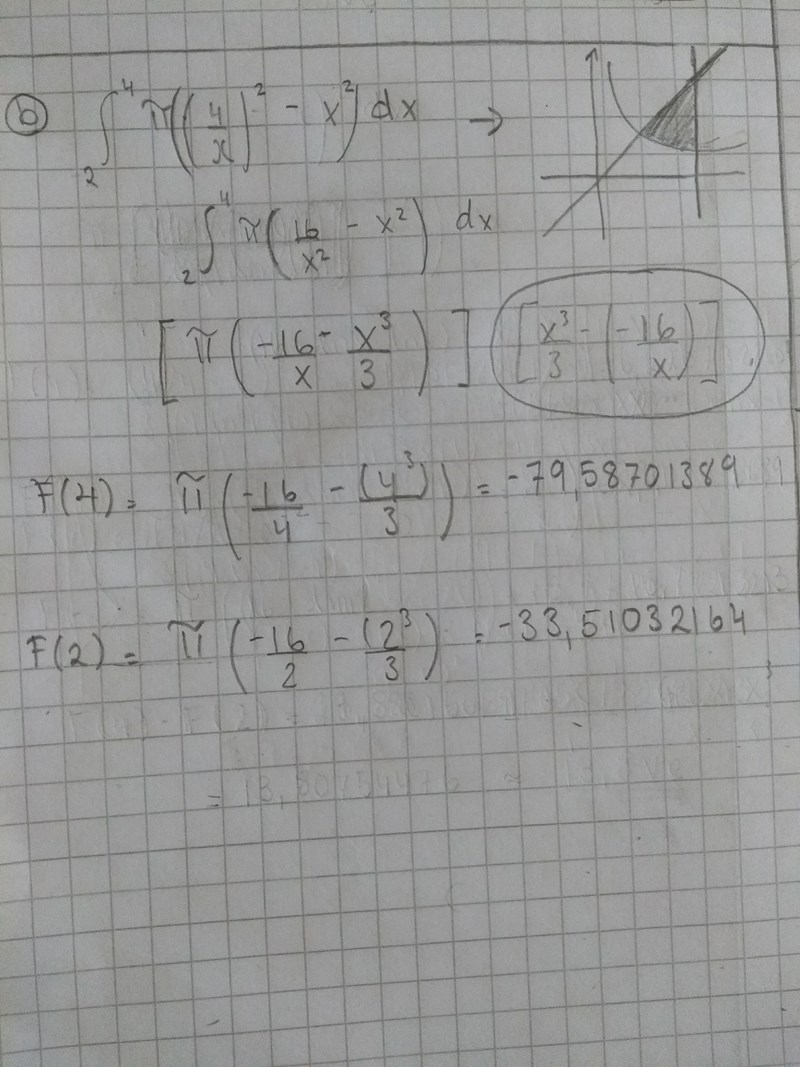 b ∫₂⁴ π((4/x)² - x²) dx →
∫₂⁴ π(16/x² - x²) dx
[π(-16/x - x³/3)] [x³/3 - (-16/x)]
F(4) = π(-16/4 - (4³)/3) = -79,58701389
F(2) = π(-16/2 - (2³/3) = -33,51032164